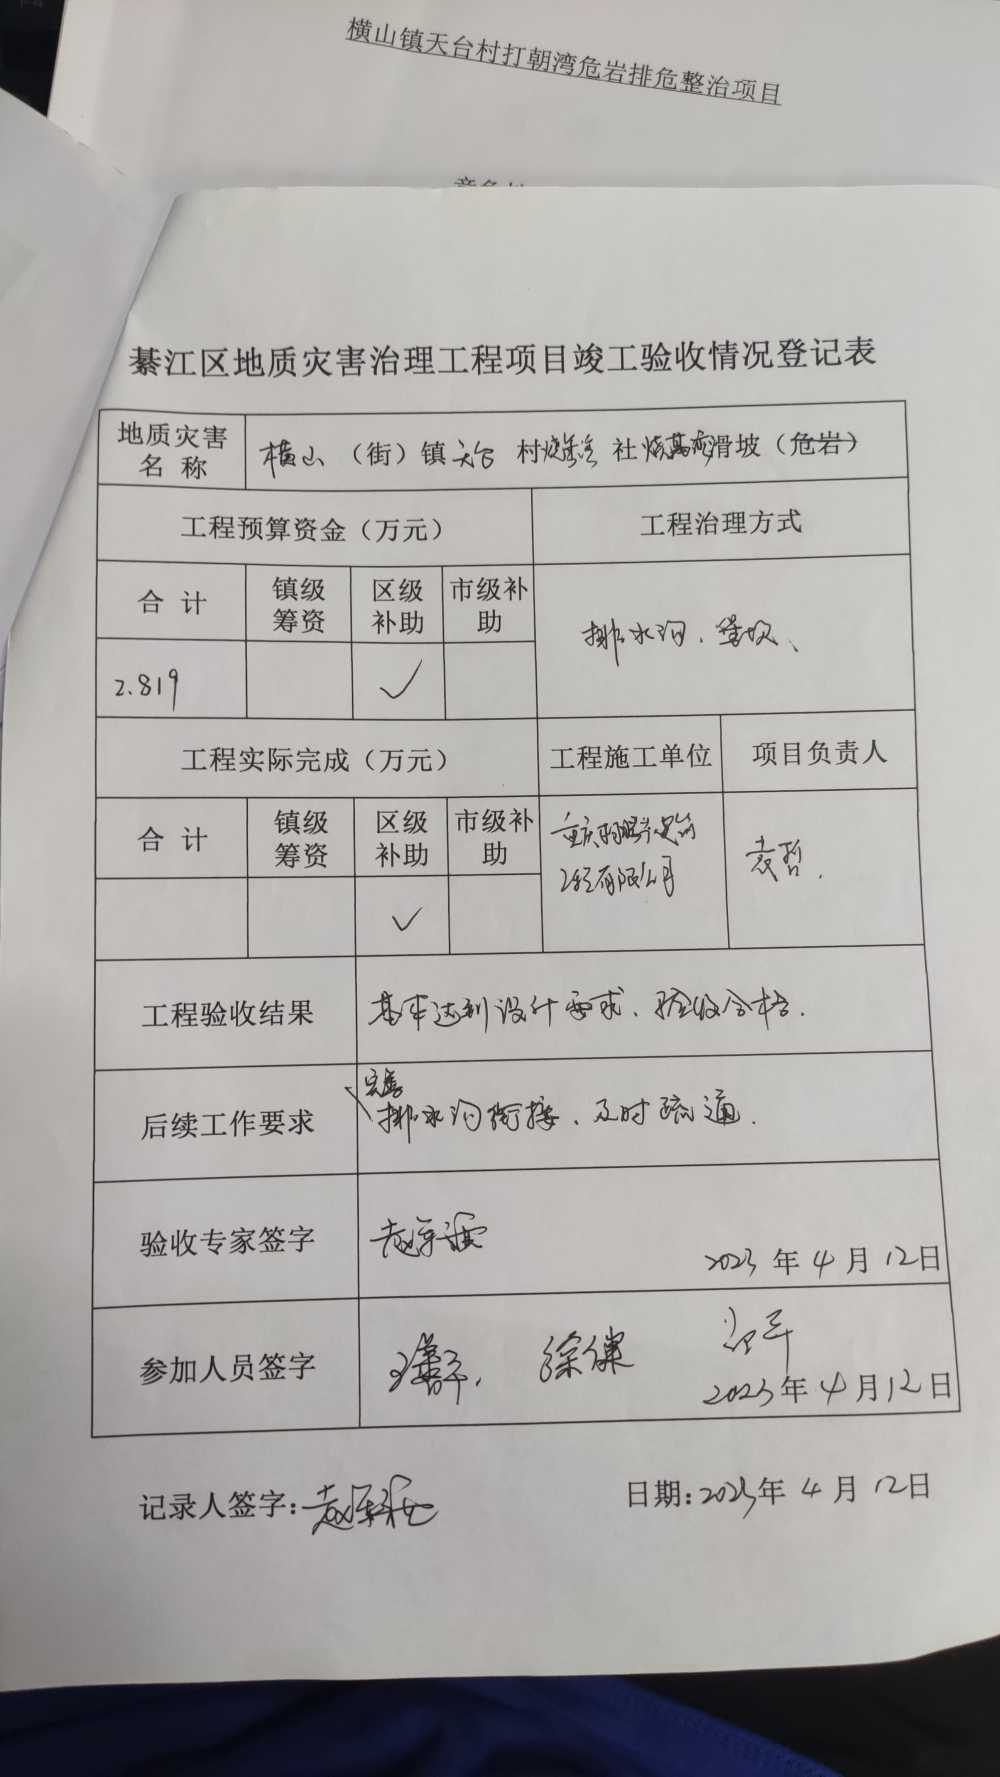 横山镇天台村打朝湾危岩排危整治项目
綦江区地质灾害治理工程项目竣工验收情况登记表
地质灾害
名 称
横山（街）镇天台村 社 滑坡（危岩）
工程预算资金（万元）
工程治理方式
合 计
镇级
筹资
区级
补助
市级补
助
排水沟、堡坎、
2.819
✓
工程实际完成（万元）
工程施工单位
项目负责人
合 计
镇级
筹资
区级
补助
市级补
助
重庆
工程有限公司
袁哲.
✓
工程验收结果
基本达到设计要求、验收合格.
后续工作要求
完善
排水沟衔接、及时疏通.
验收专家签字
2023年4月12日
参加人员签字
徐
2023年4月12日
记录人签字:
日期:2023年4月12日